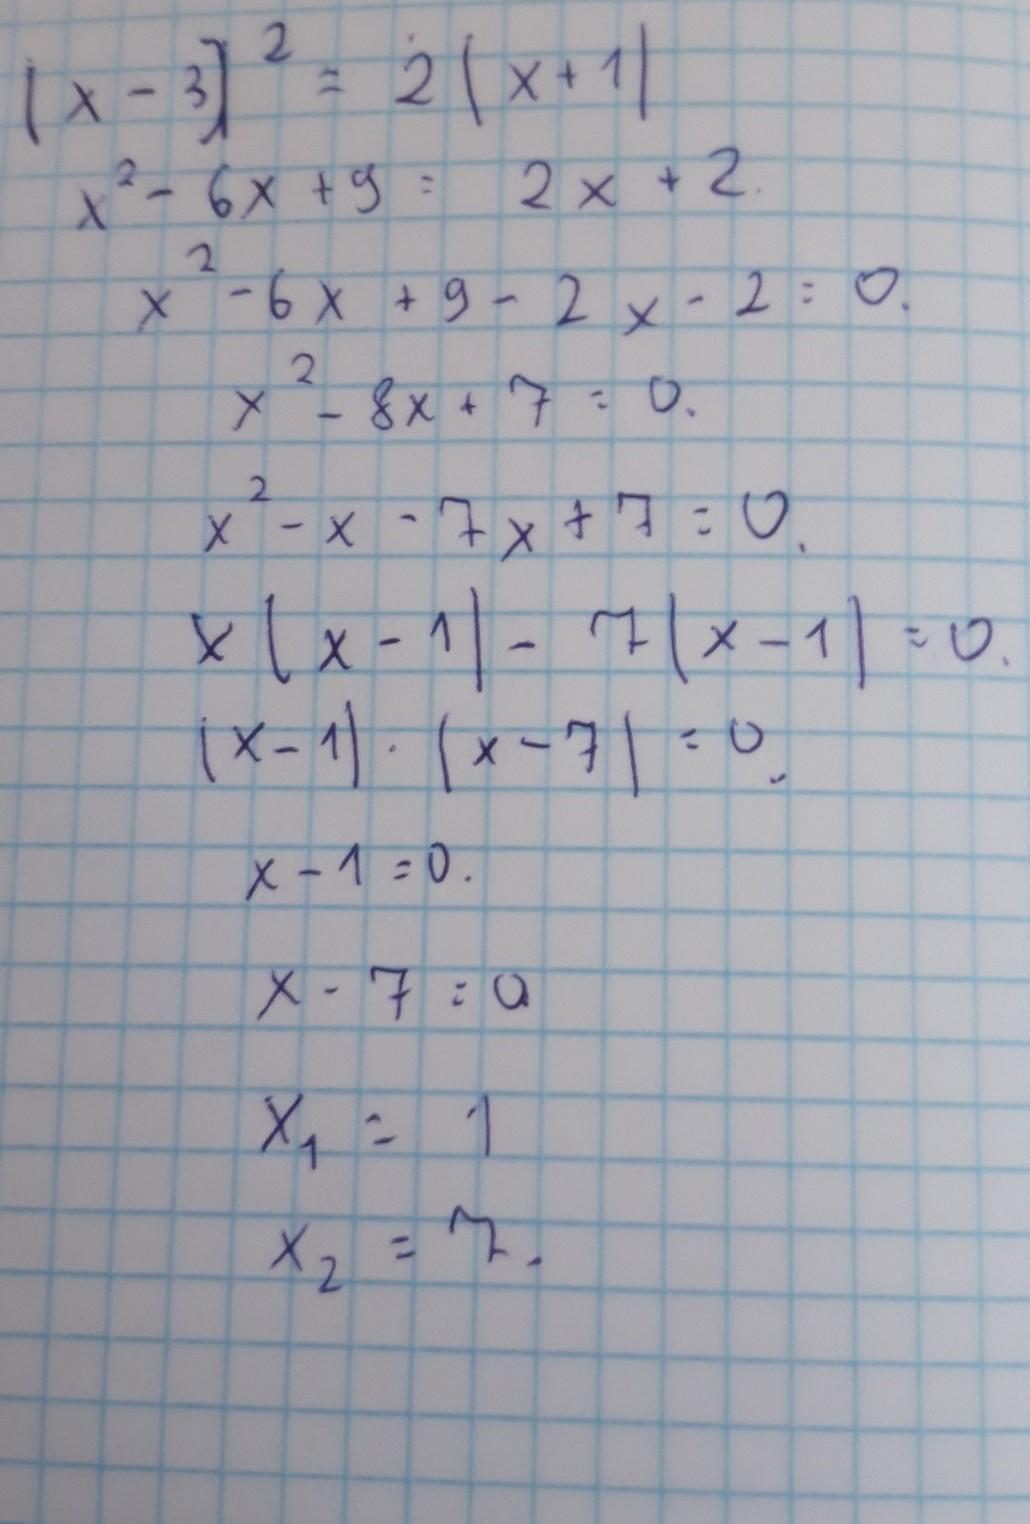 (x - 3)² = 2(x + 1)
x² - 6x + 9 = 2x + 2.
x² - 6x + 9 - 2x - 2 = 0.
x² - 8x + 7 = 0.
x² - x - 7x + 7 = 0.
x(x - 1) - 7(x - 1) = 0.
(x - 1) · (x - 7) = 0.
x - 1 = 0.
x - 7 = 0
x₁ = 1
x₂ = 7.